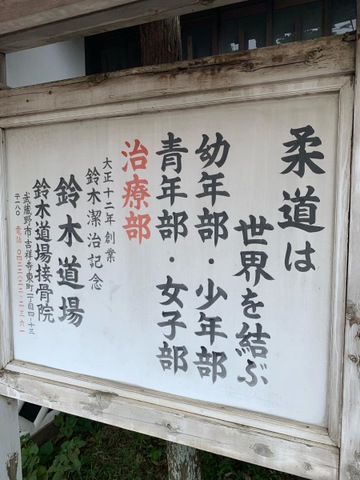 柔道は
世界を結ぶ
幼年部・少年部
青年部・女子部
治療部
大正十二年創業
鈴木潔治記念
鈴木道場
鈴木道場接骨院
武蔵野市吉祥寺東町一丁目四・十三
〒一八〇